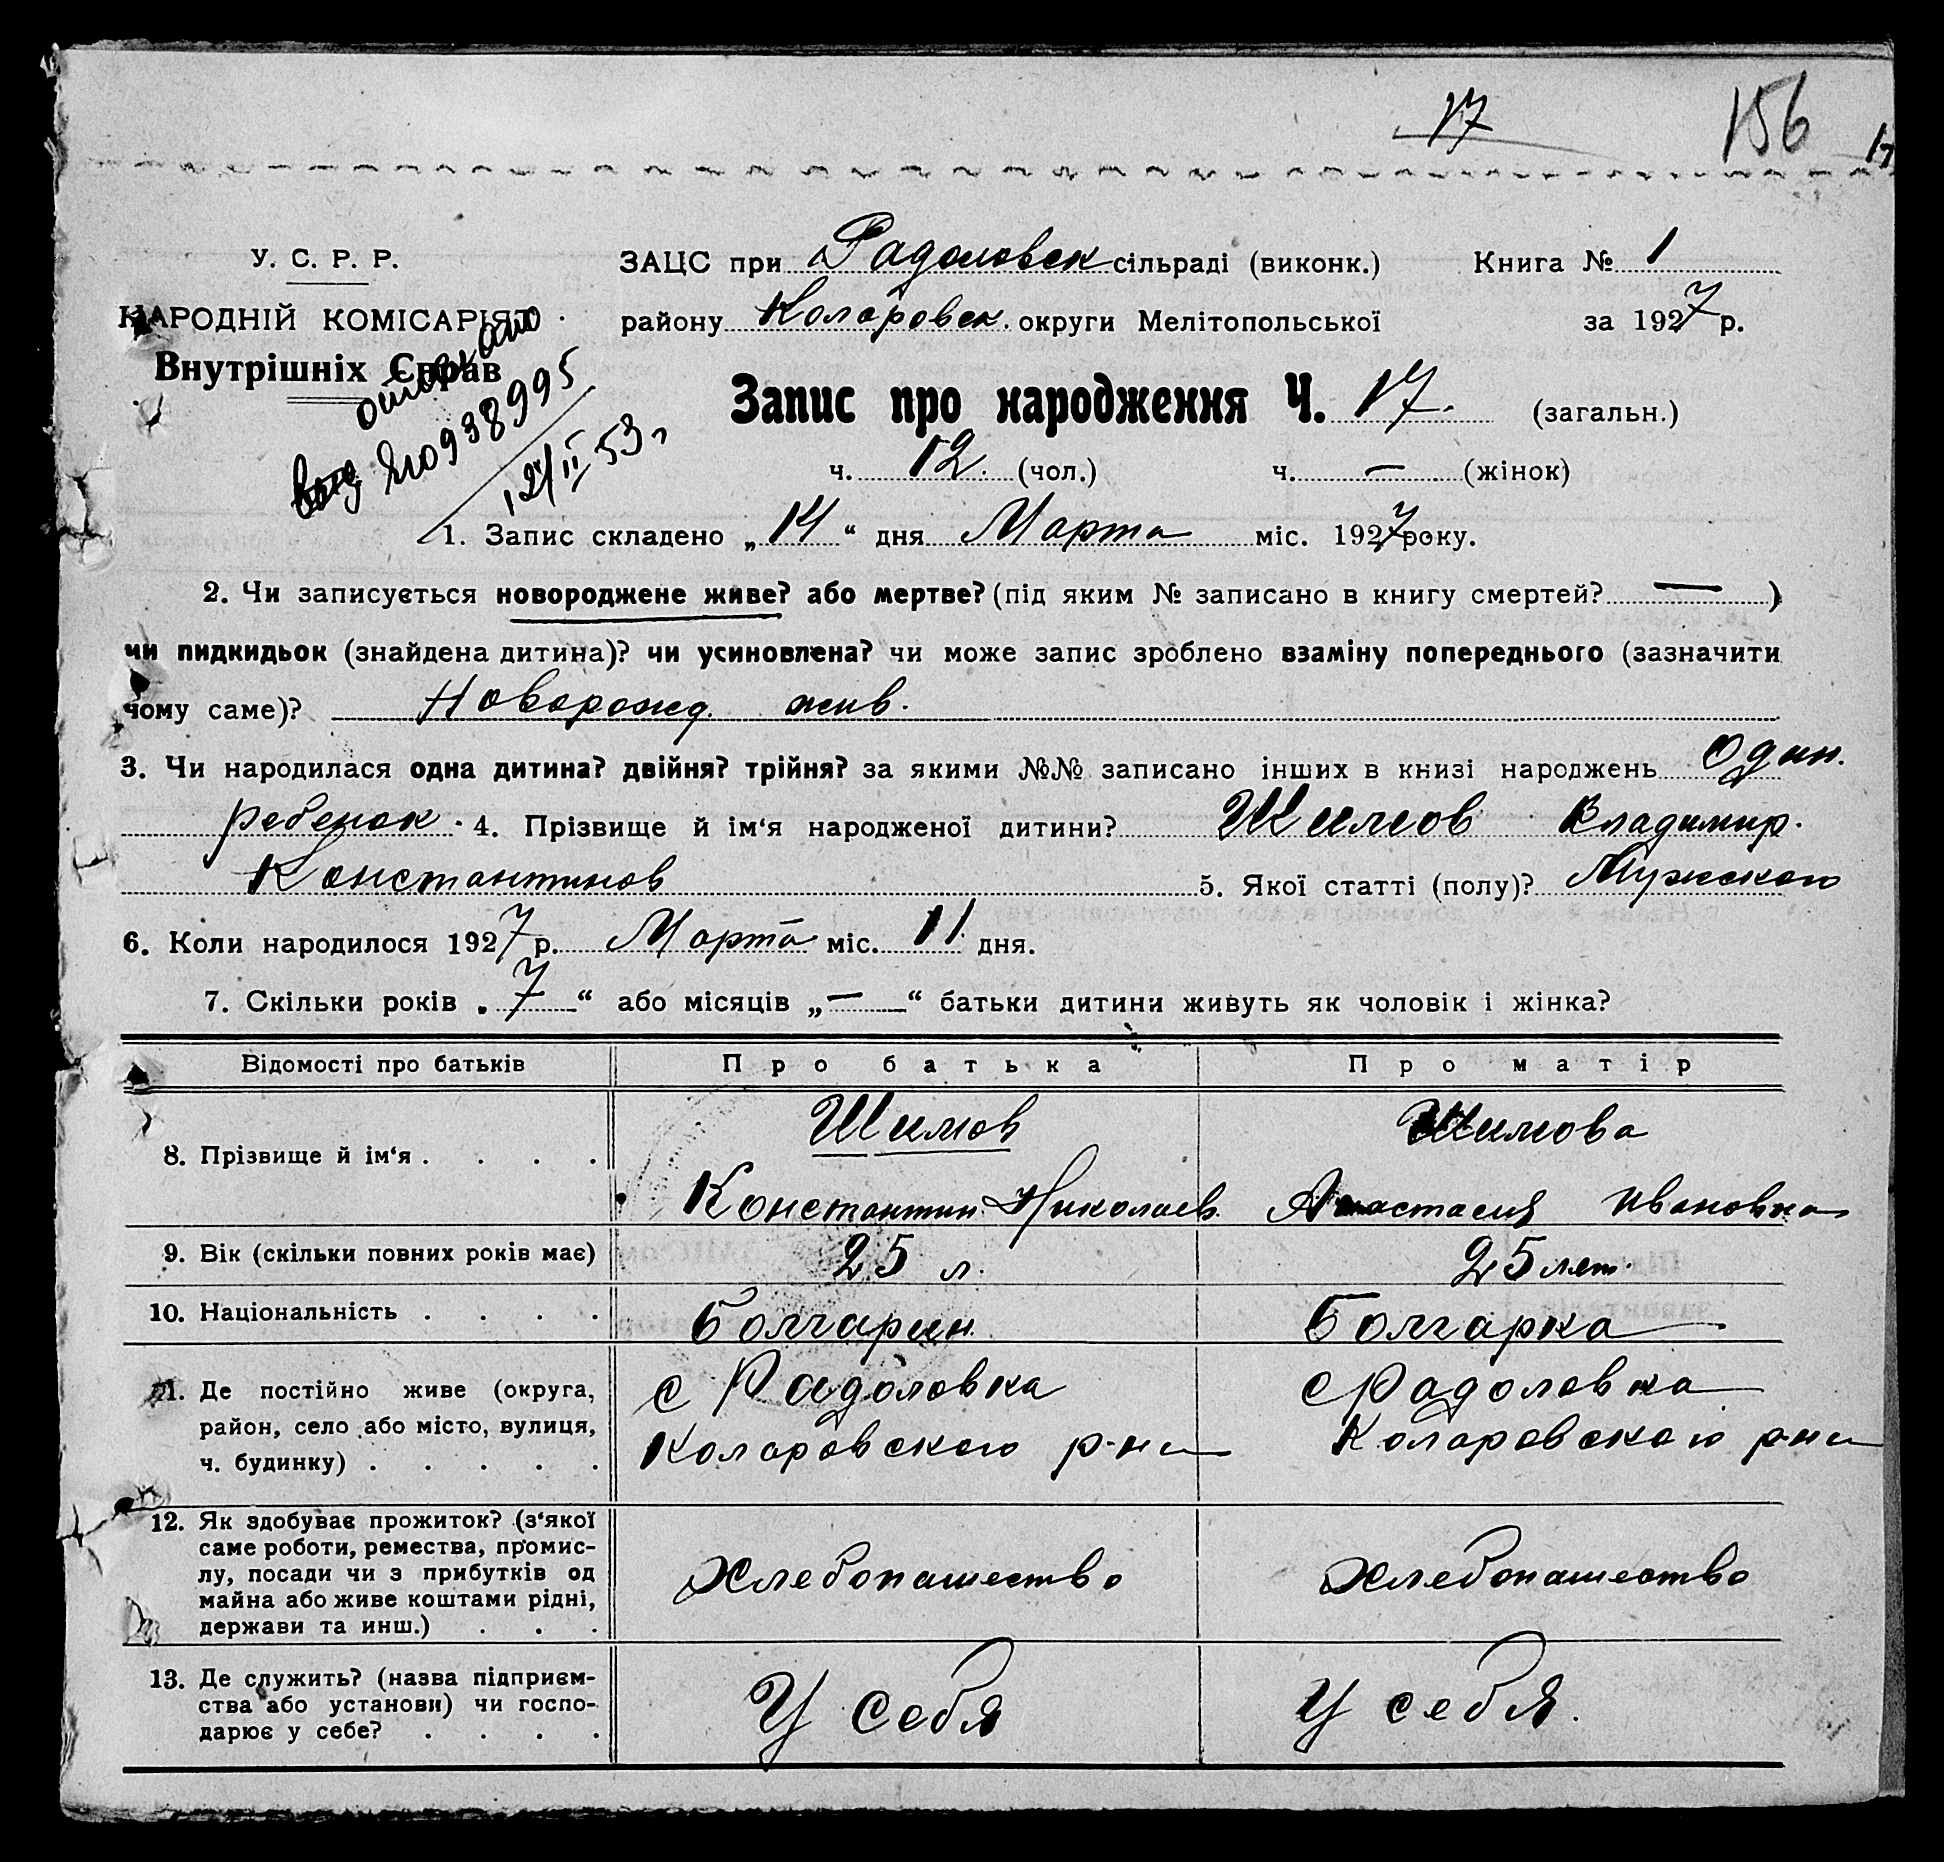 17
156
17
У. С. Р. Р.
ЗАЦС при Радоловск сільраді (виконк.)
Книга № 1
НАРОДНІЙ КОМІСАРІЯТ
району Коларовск. округи Мелітопольської
за 1927 р.
Внутрішніх Справ
938995
12/II 53 г
Запис про народження Ч. 17. (загальн.)
ч. 12. (чол.) ч. — (жінок)
1. Запис складено „14“ дня Марта міс. 1927 року.
2. Чи записується новороджене живе? або мертве? (під яким № записано в книгу смертей? — )
чи пидкидьок (знайдена дитина)? чи усиновлена? чи може запис зроблено взаміну попереднього (зазначити
чому саме)? Новорожд. жив.
3. Чи народилася одна дитина? двійня? трійня? за якими №№ записано інших в книзі народжень Один.
ребенок. 4. Прізвище й ім‘я народженої дитини? Шимов Владимир.
Константинов 5. Якої статті (полу)? Мужского
6. Коли народилося 1927 р. Марта міс. 11 дня.
7. Скільки років „7“ або місяців „—“ батьки дитини живуть як чоловік і жінка?
Відомості про батьків
Про батька
Про матір
8. Прізвище й ім‘я . . . .
Шимов
Константин Николаев.
Шимова
Анастасия Ивановна
9. Вік (скільки повних років має)
25 л.
25 лет.
10. Національність . . . .
Болгарин.
Болгарка
11. Де постійно живе (округа,
район, село або місто, вулиця,
ч. будинку) . . . . .
с Радоловка
Коларовского р-на
с Радоловка
Коларовского р-на
12. Як здобуває прожиток? (з‘якої
саме роботи, ремества, промис-
лу, посади чи з прибутків од
майна або живе коштами рідні,
держави та инш.) . . .
Хлебопашество
Хлебопашество
13. Де служить? (назва підприєм-
ства або установи) чи госпо-
дарює у себе? . . . .
У себя
У себя.